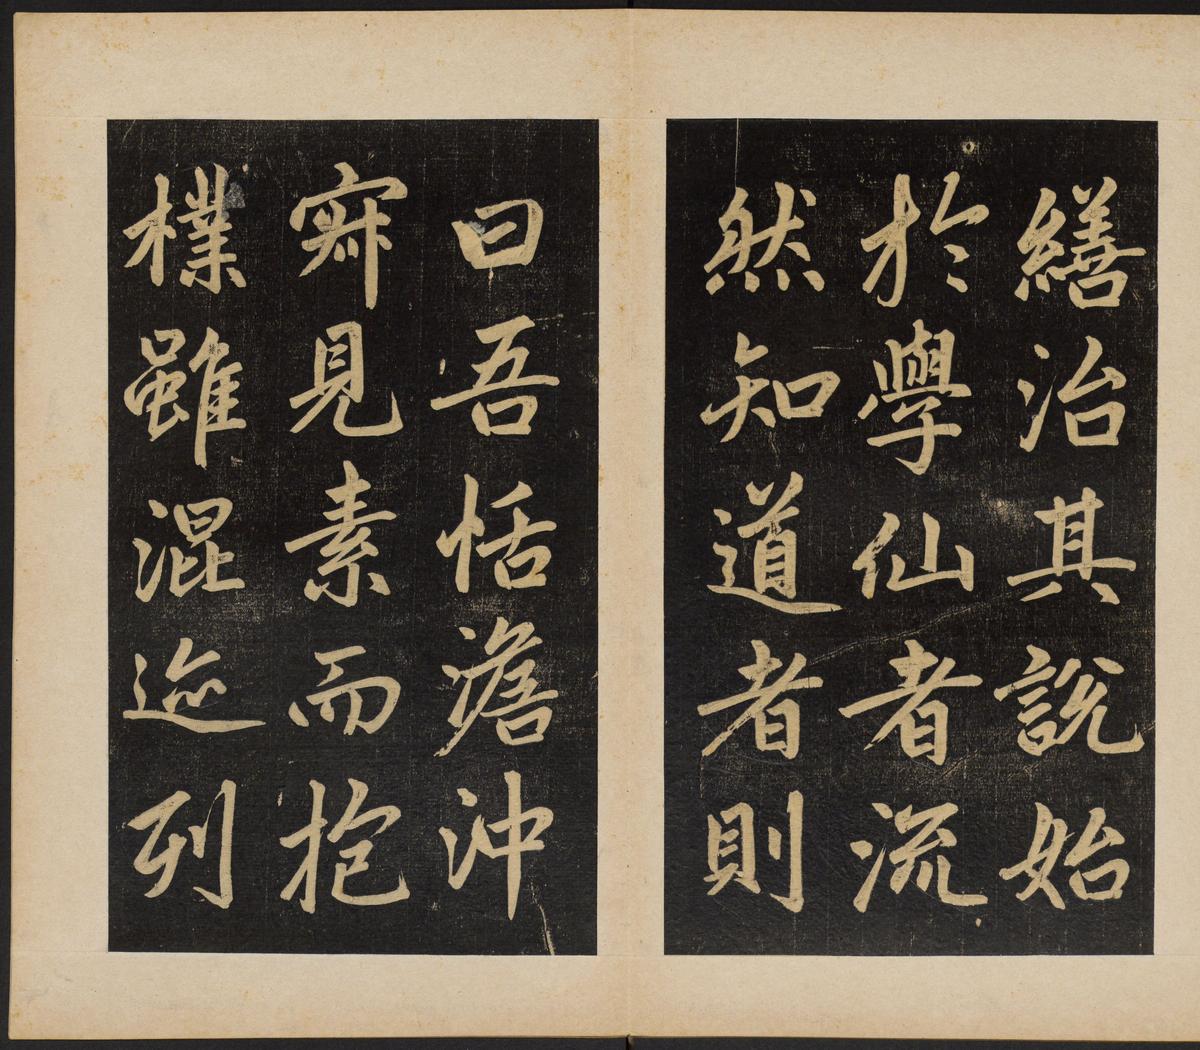 繕治其說始
於學仙者流
然知道者則
曰吾恬澹沖
寂見素而抱
樸雖混迹列